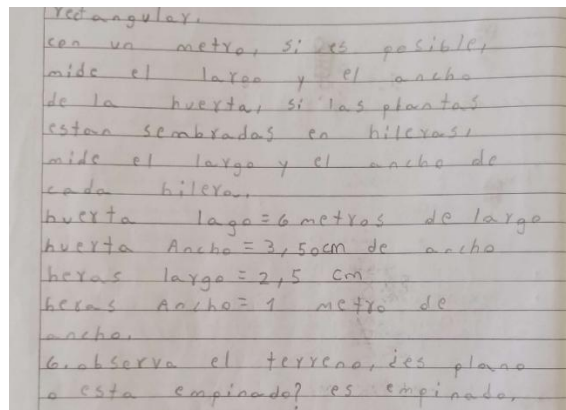 rectangular.
con un metro, si es posible,
mide el largo y el ancho
de la huerta, si las plantas
estan sembradas en hileras,
mide el largo y el ancho de
cada hilera.
huerta lago = 6 metros de largo
huerta Ancho = 3,50cm de ancho
heras largo = 2,5 cm
heras Ancho = 1 metro de
ancho.
6. observa el terreno, ¿es plano
o esta empinado? es empinado.